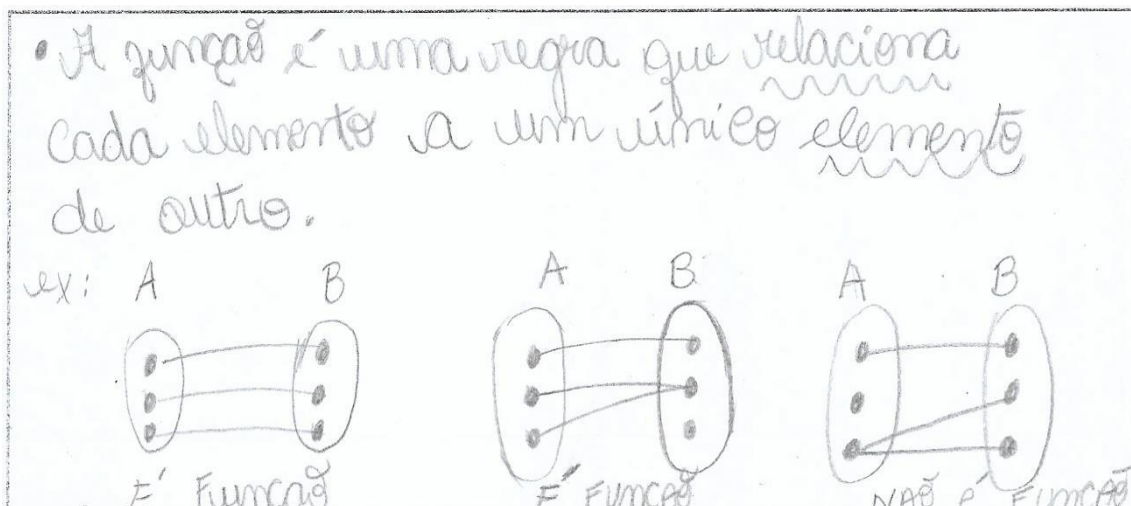 • A função é uma regra que relaciona
cada elemento a um único elemento
de outro.
ex: A B A B A B
É FUNÇÃO É FUNÇÃO NÃO É FUNÇÃO